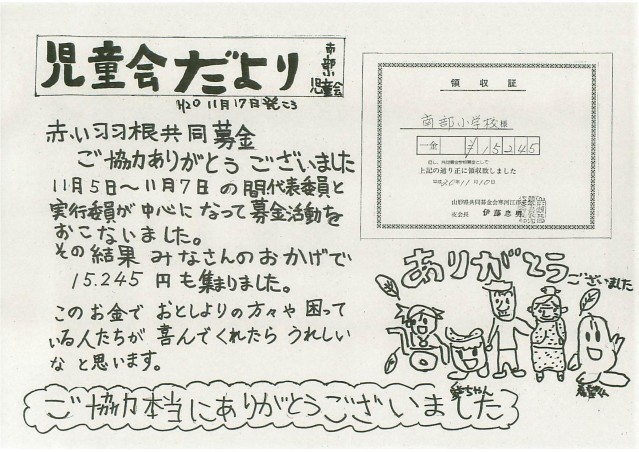 児童会だより
南部小
児童会
H20 11月17日発こう
赤い羽根共同募金
ご協力ありがとうございました
11月5日〜11月7日の間代表委員と
実行委員が中心になって募金活動を
おこないました。
その結果みなさんのおかげで
15.245円も集まりました。
このお金でおとしよりの方々や困って
いる人たちが喜んでくれたらうれしい
なと思います。
領収証
南部小学校様
一金 ¥15245
上記の通り正に領収致しました
平成20年11月10日
山形県共同募金会寒河江市支会
支会長 伊藤忠男
ありがとう
ございました
ご協力本当にありがとうございました